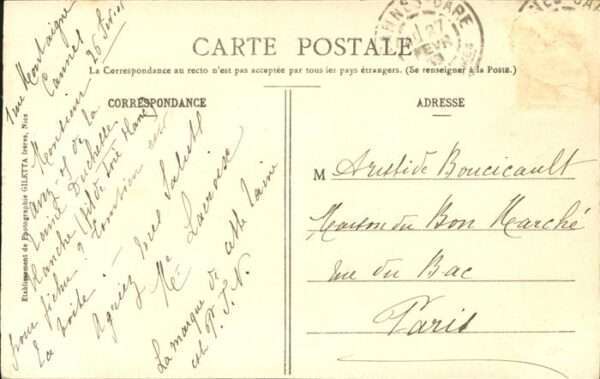 CARTE POSTALE
La Correspondance au recto n'est pas acceptée par tous les pays étrangers. (Se renseigner à la Poste.)
CORRESPONDANCE
rue Montaigne
Cannes
26 Février
Monsieur
avez-vs de la
laine Duchesse
blanche
pour fichu ? Combien
la boîte ? -
Agréez mes Saluts
Me Lacroix
La marque de cette laine
est P. J. N.
Etablissement de Photographie GILETTA frères, Nice
CANNES-GARE
27
FEVR
ADRESSE
M Aristide Boucicault
Maison du Bon Marché
rue du Bac
Paris